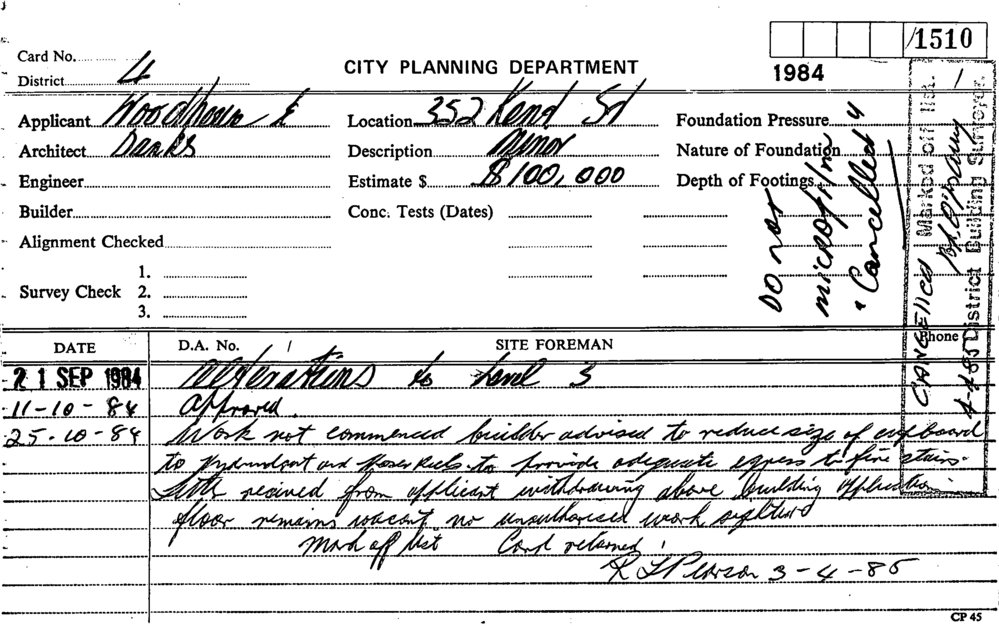 /1510
Card No.
District 4
CITY PLANNING DEPARTMENT
1984
Applicant Woodhouse &
Location 352 Kent St
Foundation Pressure
Architect Danks
Description Minor
Nature of Foundation
Engineer
Estimate $ $100,000
Depth of Footings
Builder
Conc. Tests (Dates)
Alignment Checked
1.
Survey Check 2.
3.
Do not
microfilm
Cancelled
CANCELLED Marked off list.
4-4-85 District Building Surveyor.
DATE D.A. No. / SITE FOREMAN Phone
21 SEP 1984 Alterations to Level 3
11-10-84 Approved.
25-10-84 Work not commenced builder advised to reduce size of cupboard
to Hydrant and Hose Reels to provide adequate egress to fire stairs.
Letter received from applicant withdrawing above building application
floor remains vacant no unauthorised work sighted
Mark off list Card returned
R L Pearson 3-4-85
CP 45